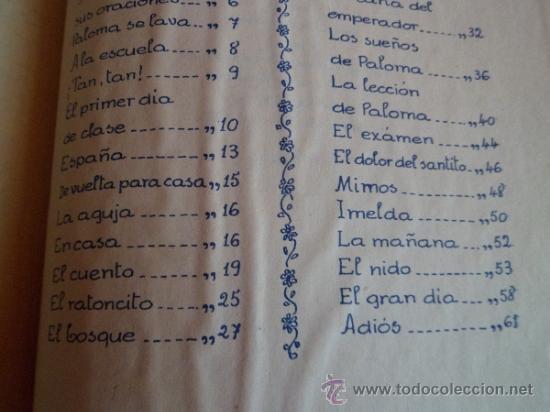 sus oraciones -- „ 6
Paloma se lava -- „ 7
A la escuela ---- „ 8
¡Tan, tan! ------ „ 9
El primer dia
de clase -------- „ 10
España --------- „ 13
De vuelta para casa „ 15
La aguja ------ „ 16
En casa ------- „ 16
El cuento ------ „ 19
El ratoncito ----- „ 25
El bosque ------- „ 27
del
emperador ----- „ 32
Los sueños
de Paloma ------ „ 36
La lección
de Paloma ------ „ 40
El exámen ----- „ 44
El dolor del santito „ 46
Mimos -------- „ 48
Imelda ------- „ 50
La mañana ---- „ 52
El nido ------- „ 53
El gran dia ---- „ 58
Adiós -------- „ 61
© www.todocoleccion.net